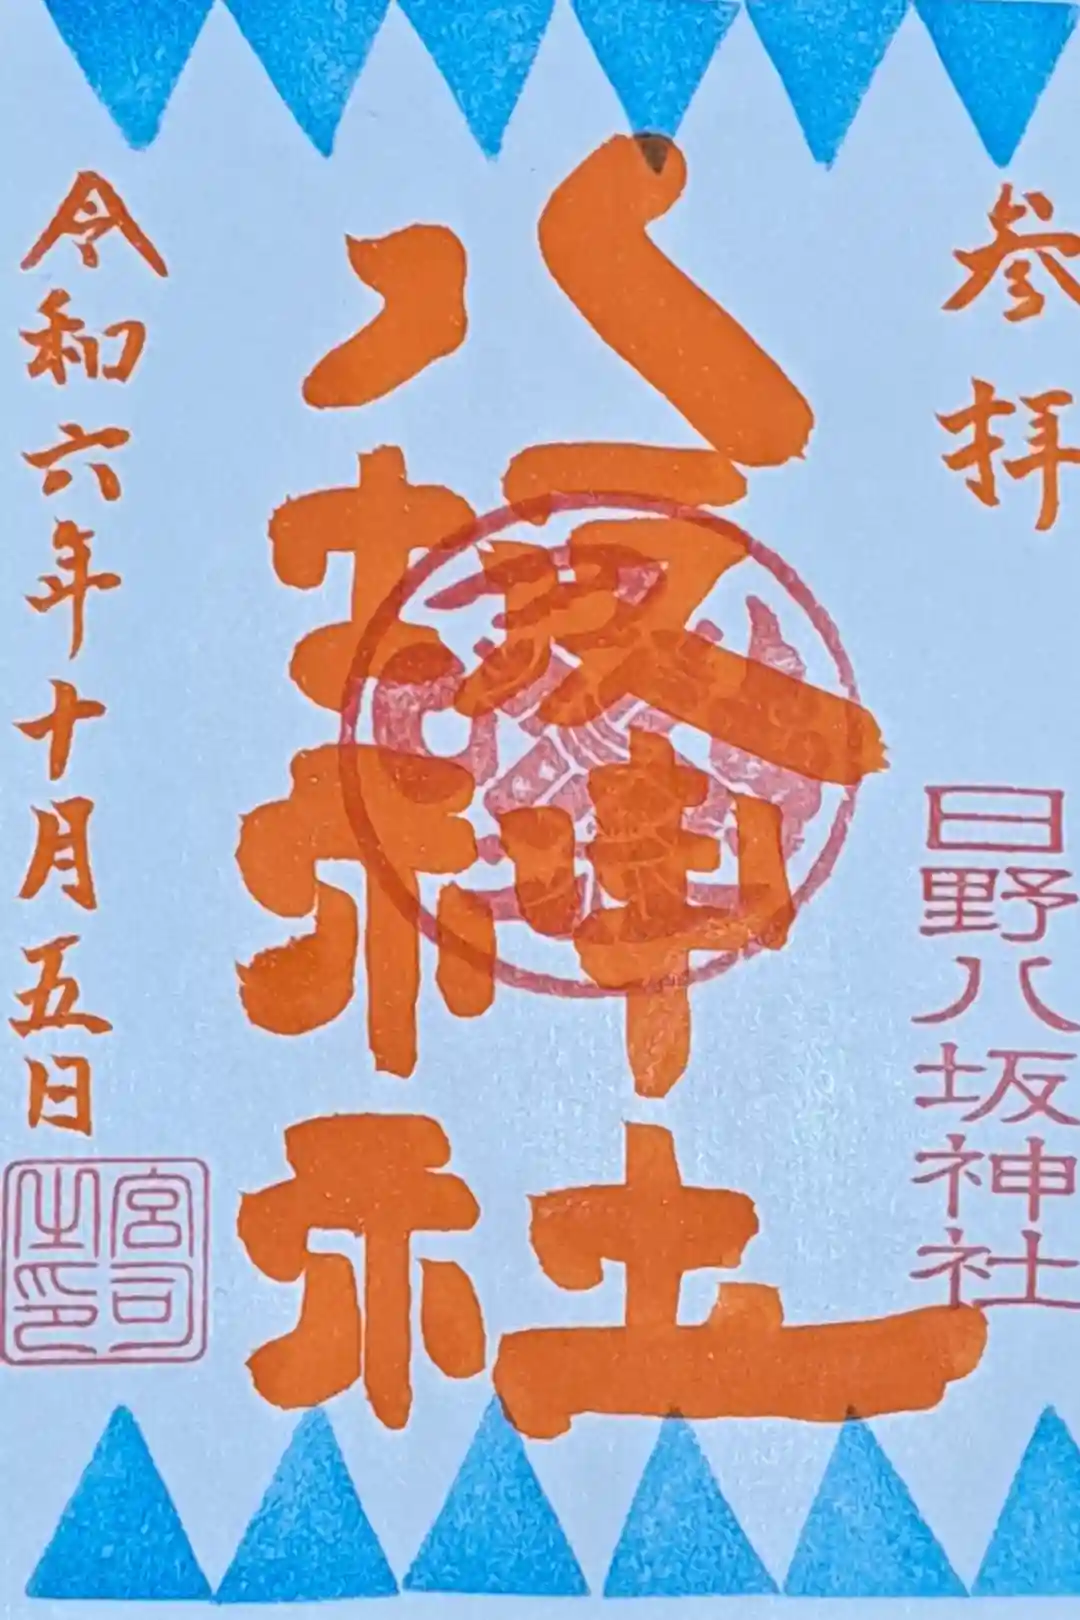 参拝
日野八坂神社
八坂神社
令和六年十月五日
宮司
之印